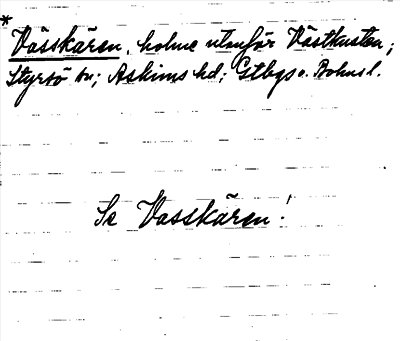 * Vässkären, holme utanför Västkusten;
Styrsö sn; Askims hd; Gtbgs o. Bohusl.
Se Vasskären!